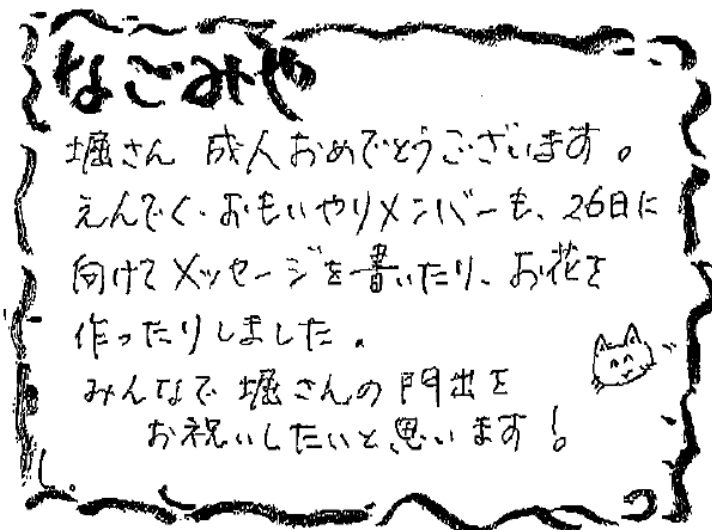 なごみや
堀さん 成人おめでとうございます。
えんでく・おもいやりメンバーも、26日に
向けてメッセージを書いたり、お花を
作ったりしました。
みんなで堀さんの門出を
お祝いしたいと思います!